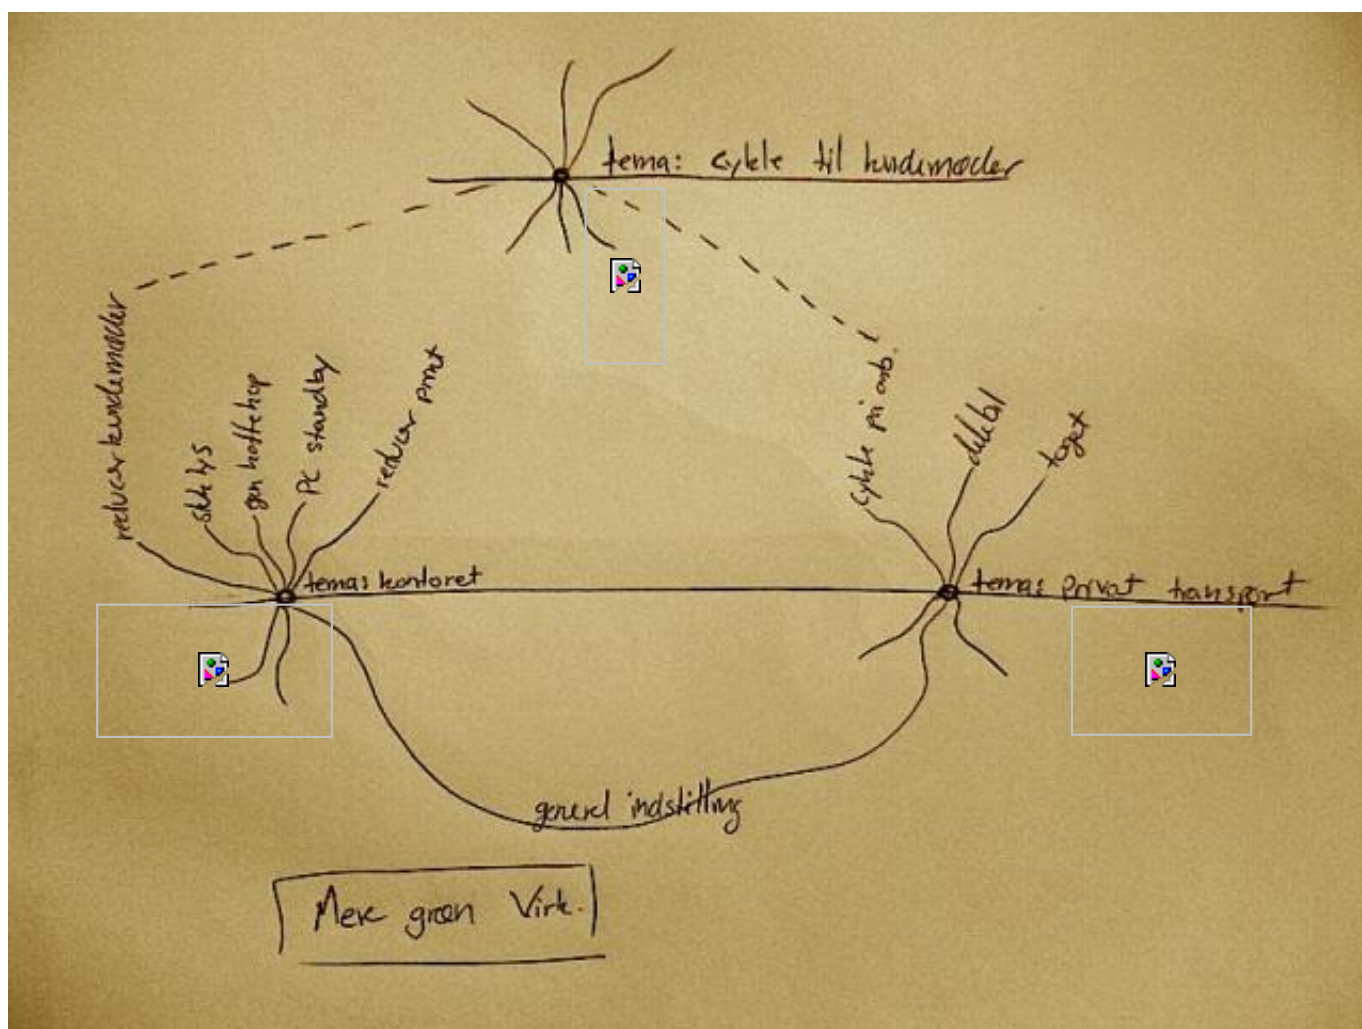 tema: cykle til kundemøder
reducer kundemøder
sluk lys
gen kaffekop
PC standby
reducer print
cykle på arb.
delebil
toget
tema: kontoret
tema: privat transport
generel indstilling
Mere grøn Virk.